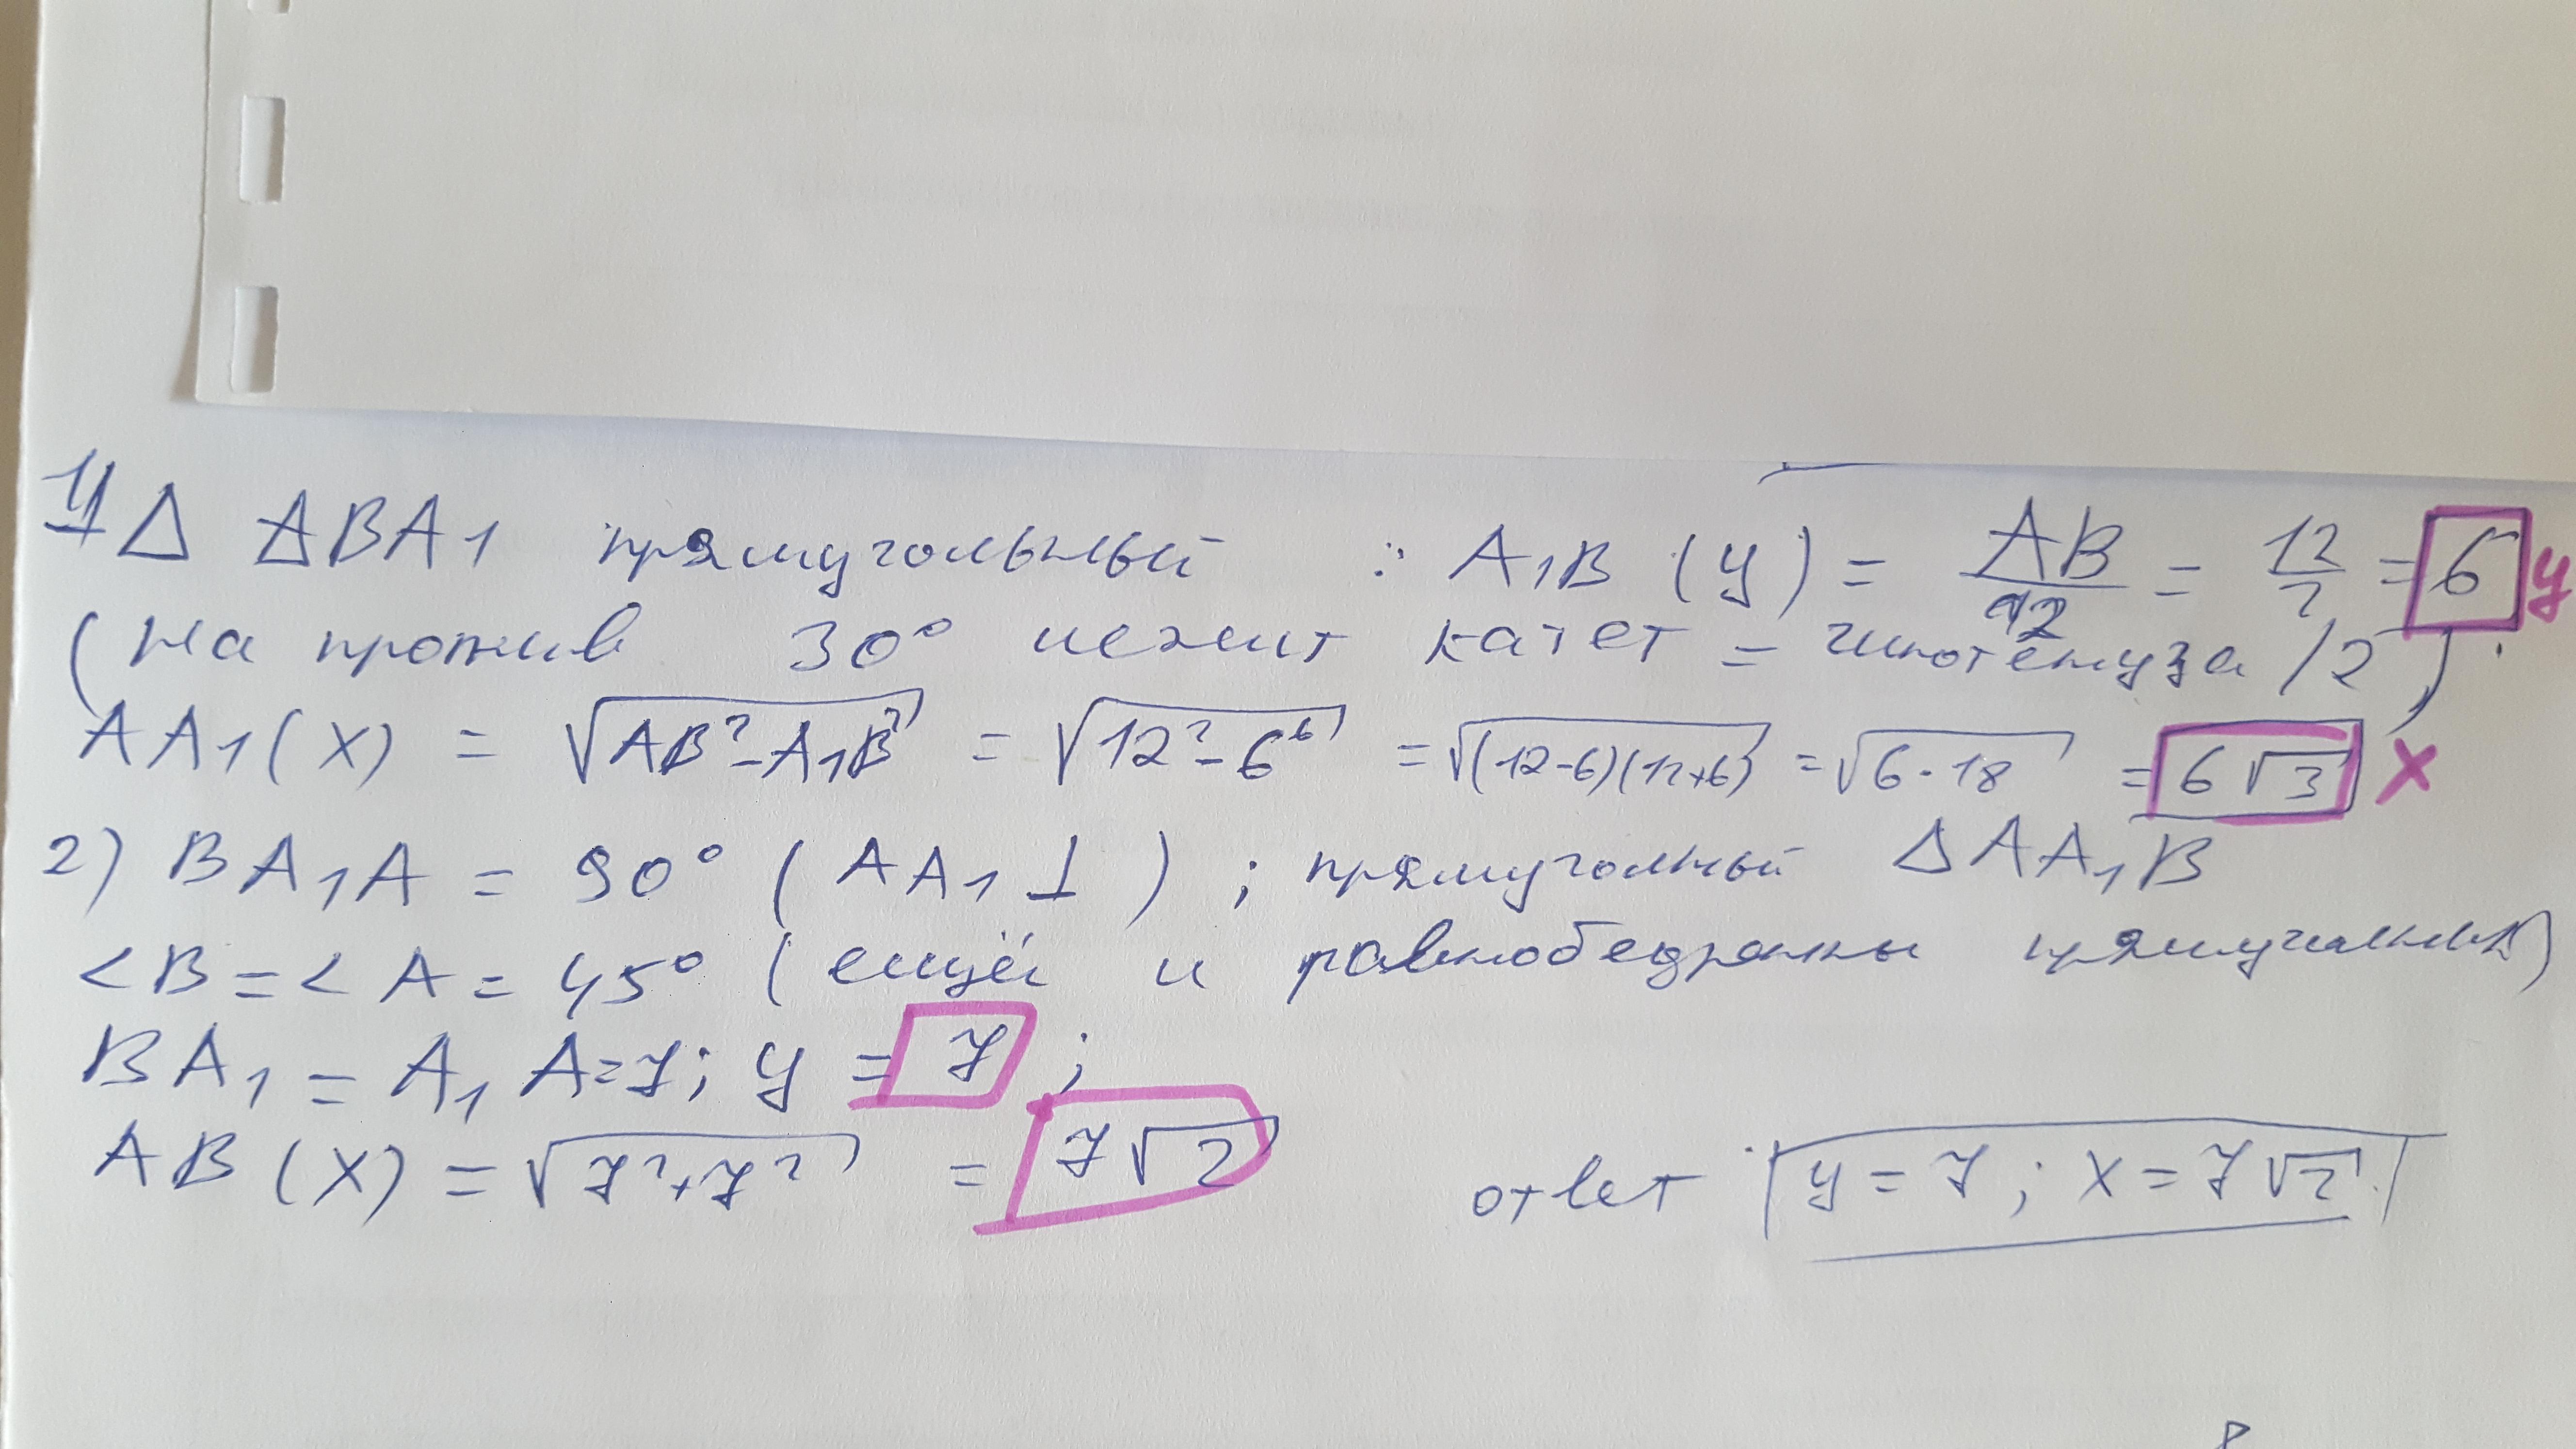 1) Δ ABA1 прямугольный : A1B (y) = AB/2 = 12/2 = 6 y
(на против 30° лежит катет = гипотенуза /2),
AA1 (x) = √AB²-A1B² = √12²-6² = √(12-6)(12+6) = √6·18 = 6√3 x
2) BA1A = 90° (AA1 ⊥ ) ; прямуголный ΔAA1B
<B=<A= 45° (ещё и равнобедрены
BA1 = A1A=7; y = 7 ;
AB (x) = √7²+7² = 7√2
ответ y = 7 ; x = 7√2